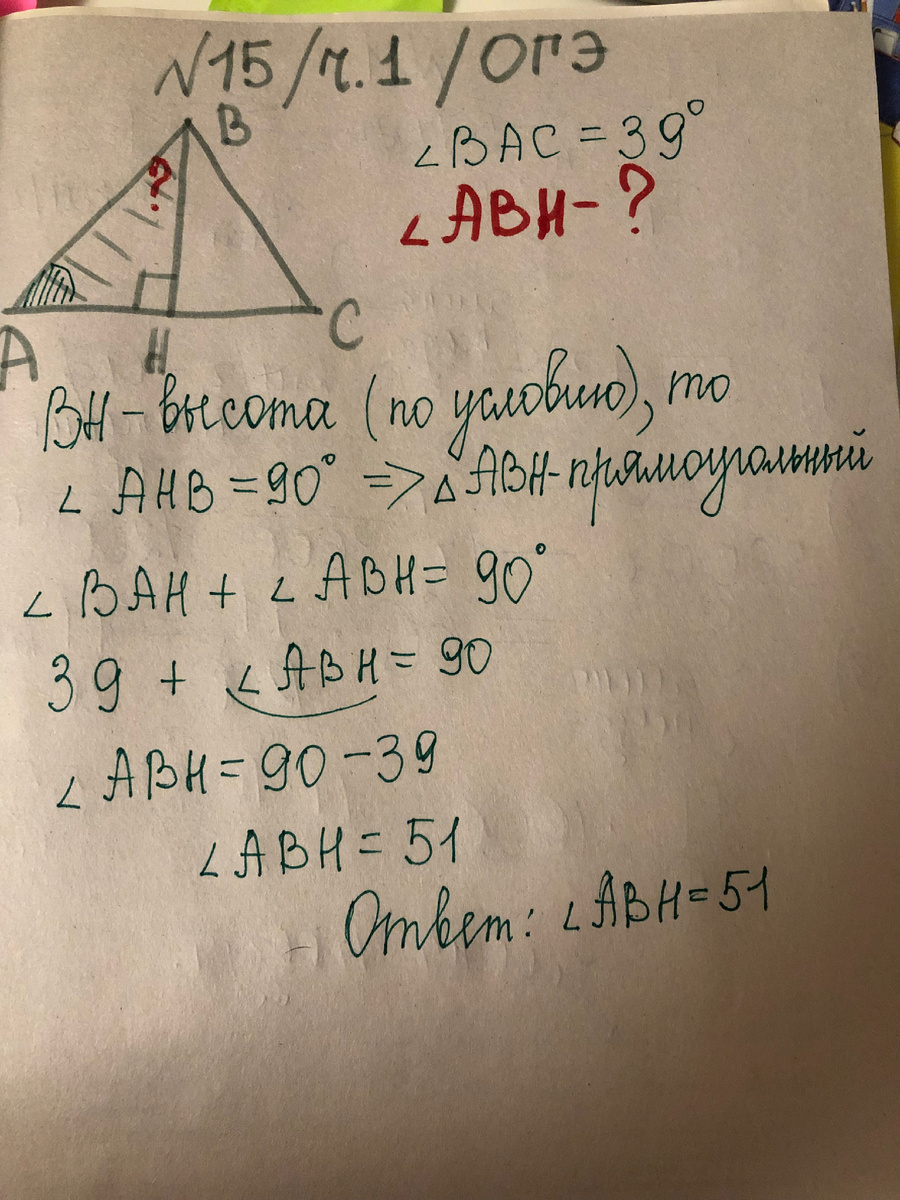 №15/ч.1/ОГЭ
B
∠BAC = 39°
?
∠ABH - ?
A
H
C
BH - высота (по условию), то
∠ AHB = 90° => △ABH-прямоугольный
∠ BAH + ∠ ABH = 90°
39 + ∠ABH = 90
∠ ABH = 90 - 39
∠ABH = 51
Ответ: ∠ABH = 51